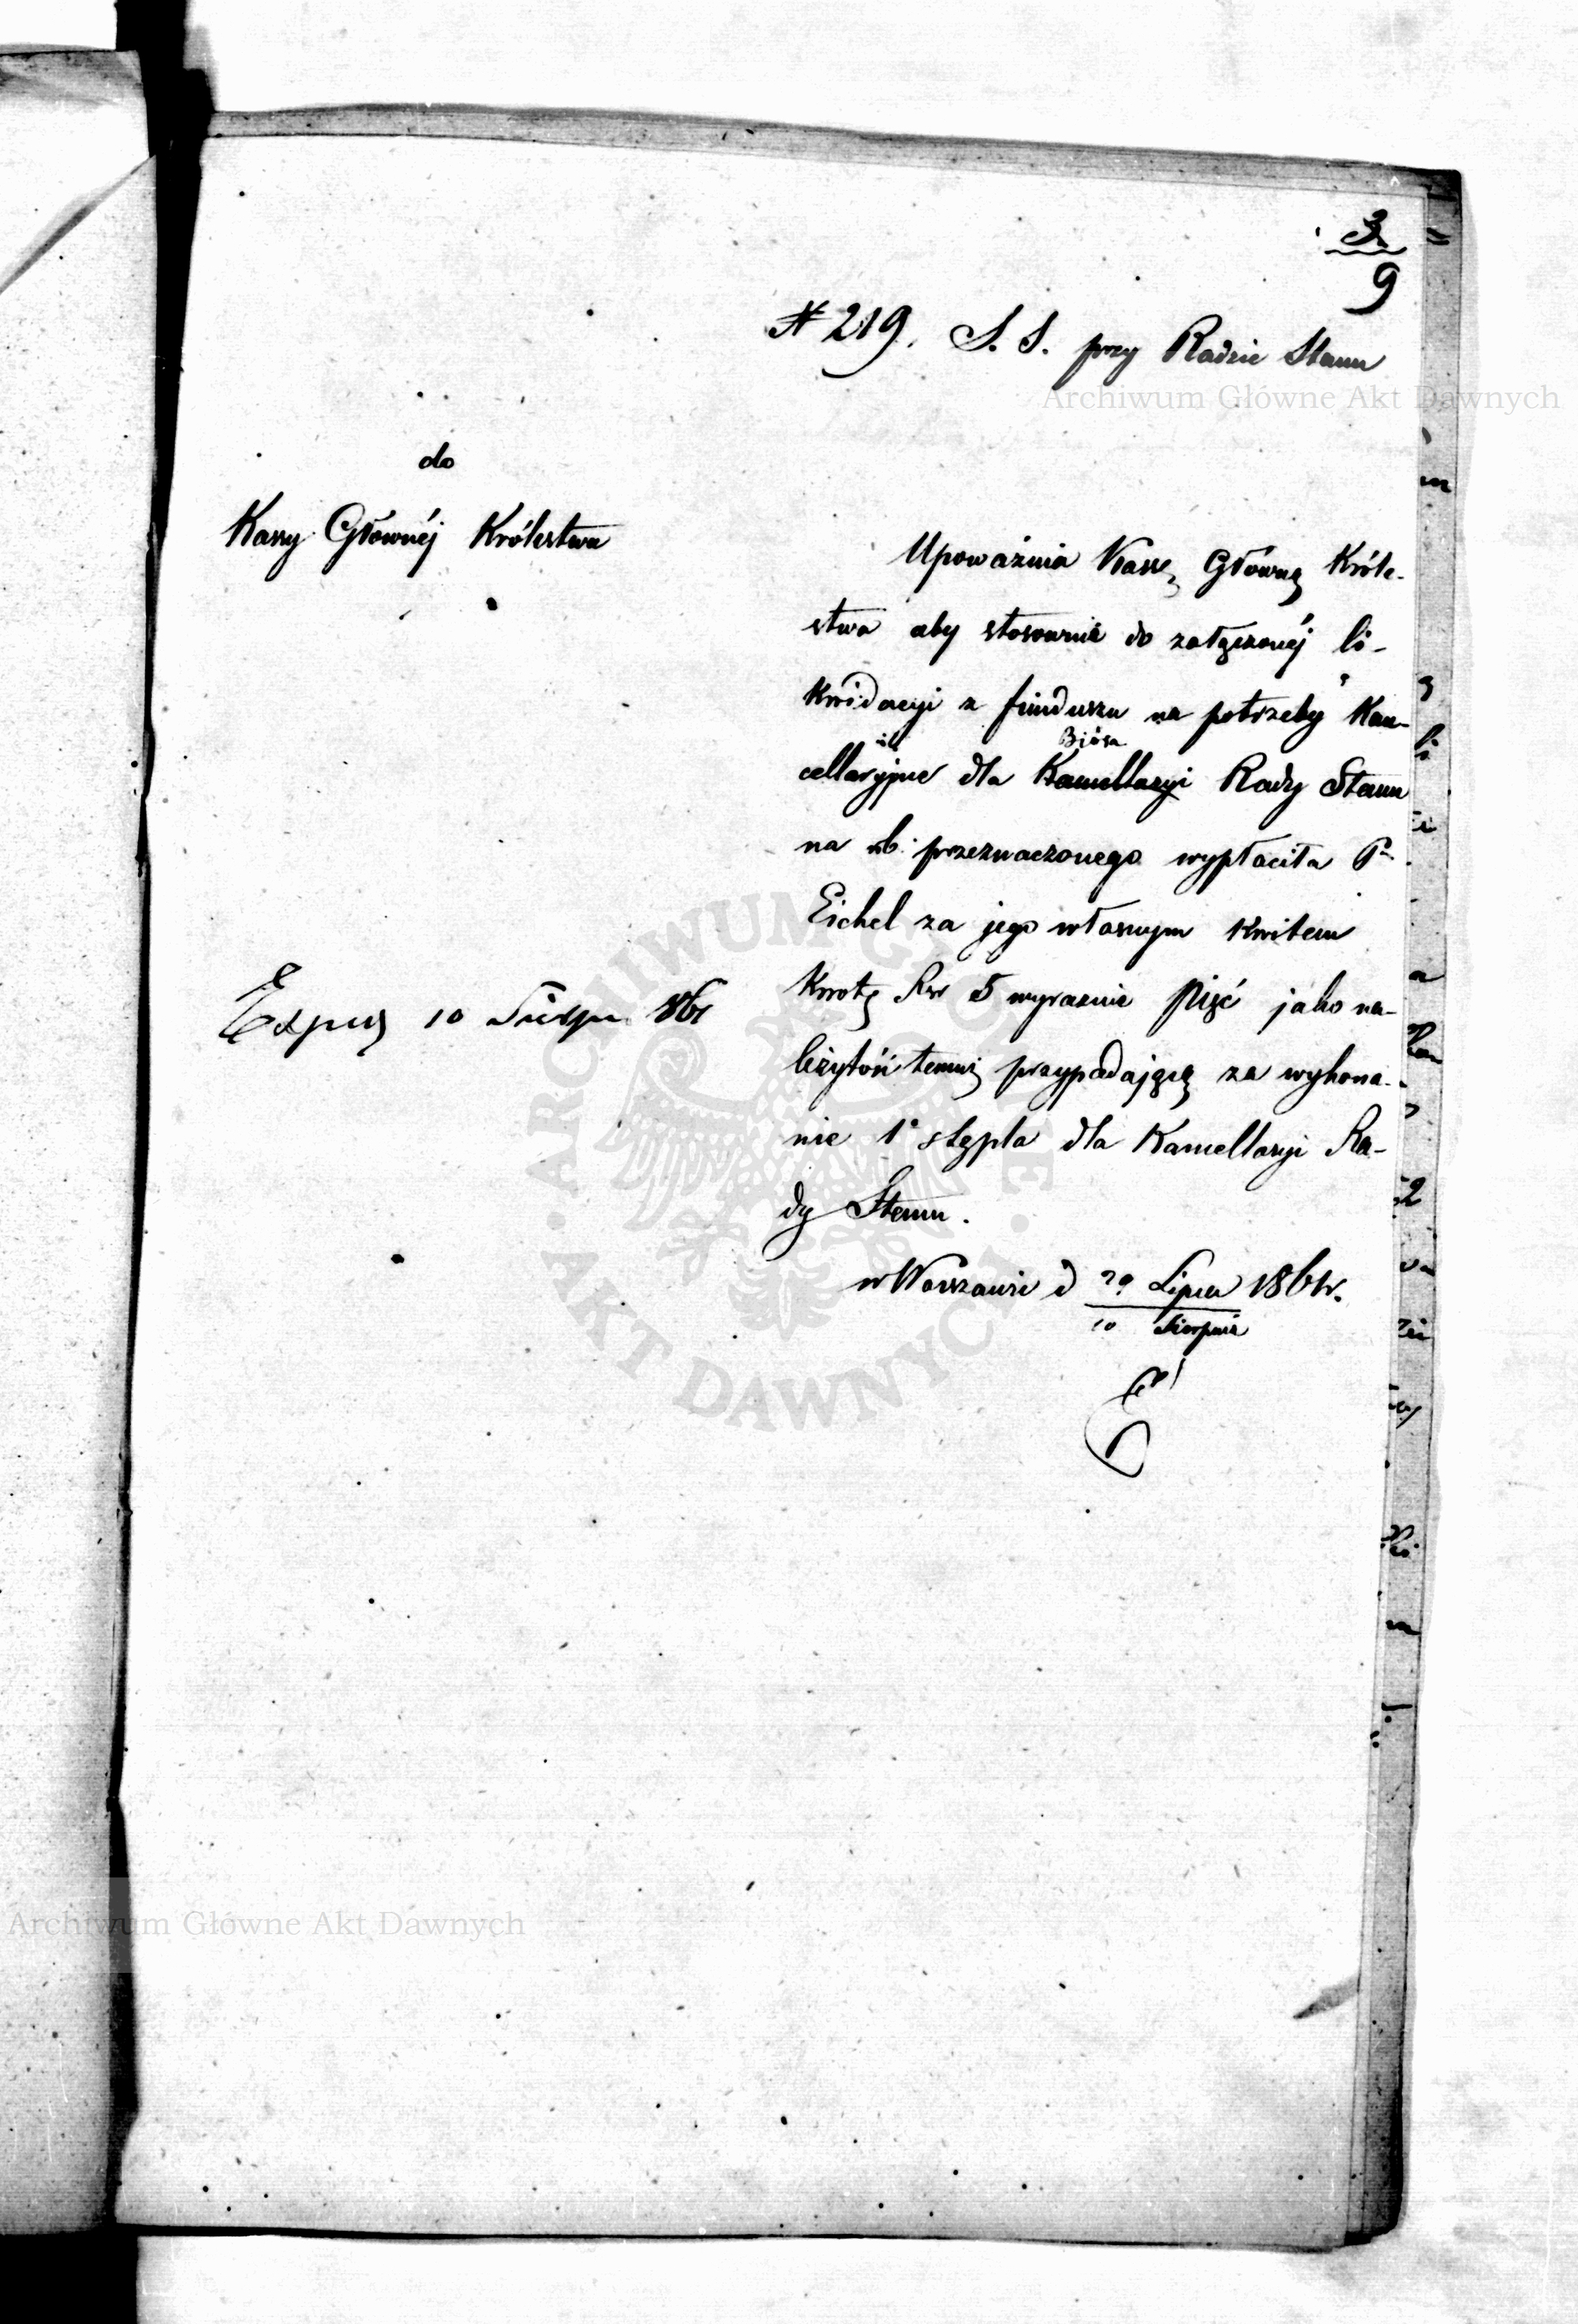 3
9
№ 219. S. S. przy Radzie Stanu
Archiwum Główne Akt Dawnych
do
Kassy Głównéj Królestwa
Upoważnia Kassę Główną Króle-
stwa aby stosownie do załączonéj li-
kwidacyi z funduszu na potrzeby Kan-
cellaryjne dla Bióra Kancellaryi Rady Stanu
na rb. przeznaczonego wypłaciła Pu
Eichel za jego własnym kwitem
Exped 10 Sierpn 1861
kwotę Rsr 5 wyraznie pięć jako na-
leżytość temuż przypadającą za wykona-
nie 1o stępla dla Kancellaryi Ra-
dy Stanu.
w Warszawie d 29 Lipca 1861 r.
10 Sierpnia
ARCHIWUM GŁÓWNE AKT DAWNYCH
Archiwum Główne Akt Dawnych